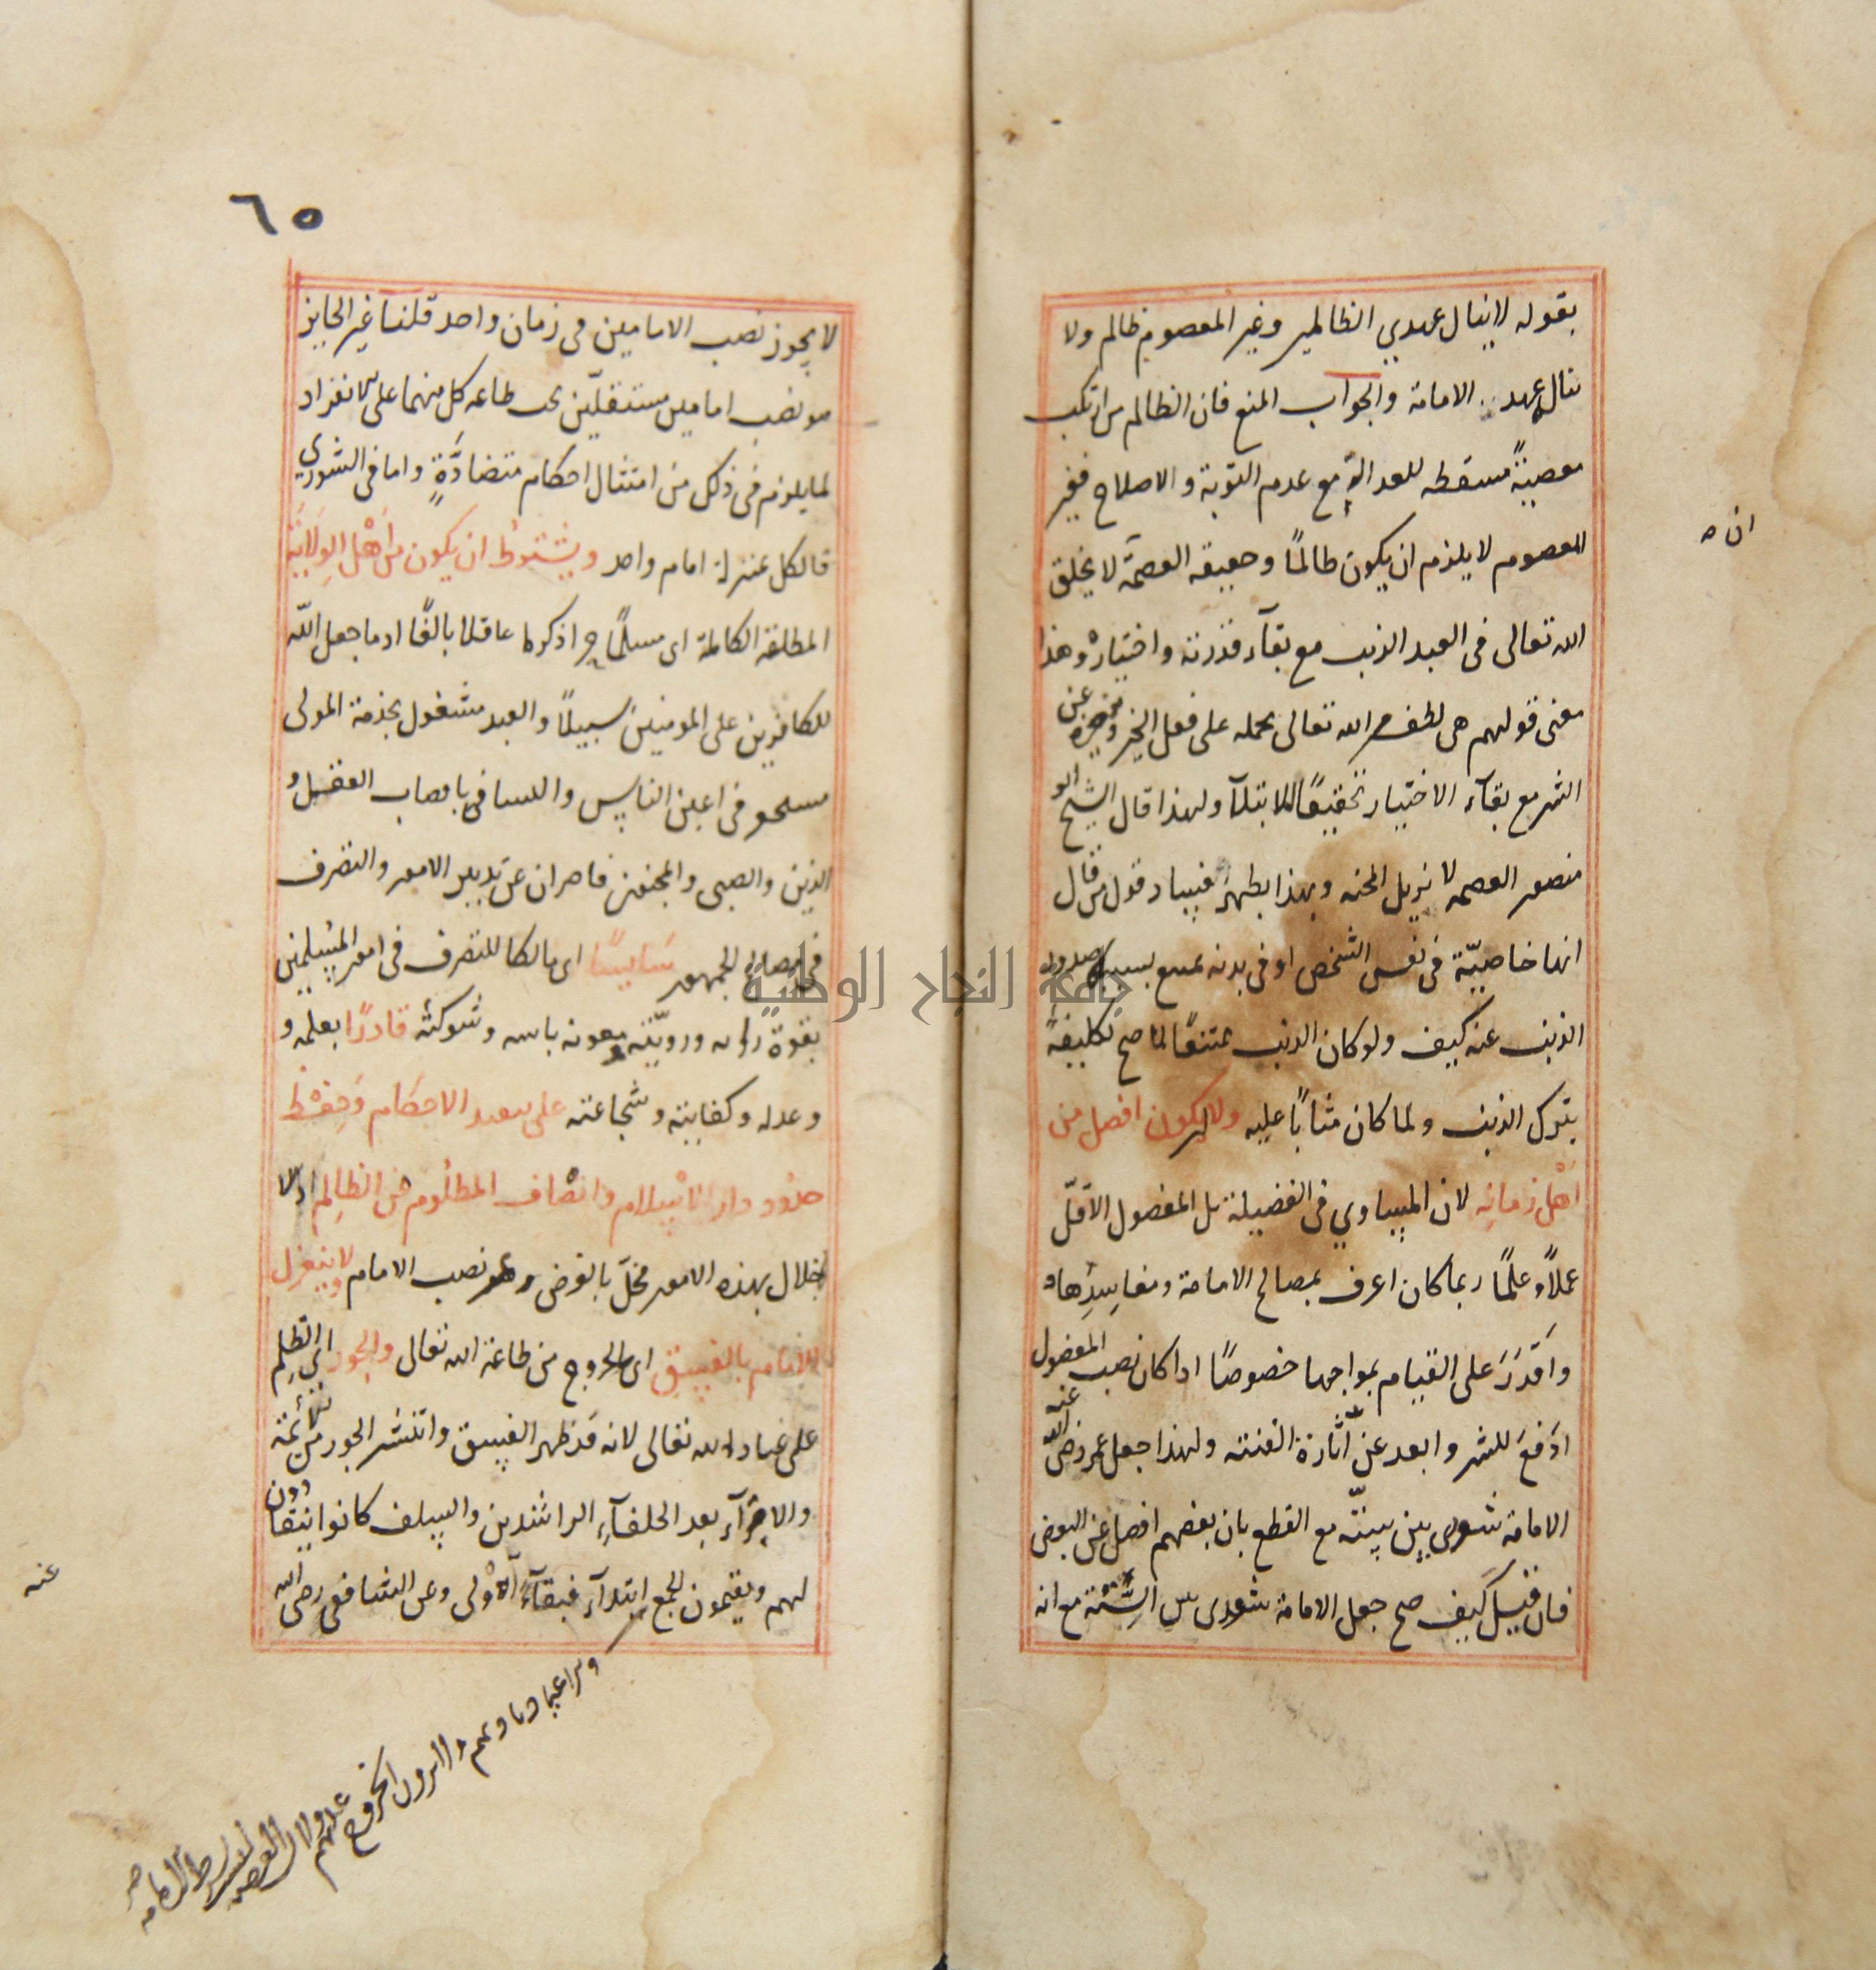 بقوله لا ينال عهدي الظالمين وغير المعصوم ظالم ولا
ينال عهد الامامة والجواب المنع فان الظالم من ارتكب
معصيةً مسقطه للعدالة مع عدم التوبة والاصلاح فغير
المعصوم لا يلزم ان يكون ظالمًا وحقيقه العصمة لا يخلق
ان صـ
الله تعالى فى العبد الذنب مع بقآء قدرته واختياره وهذا
معنى قولهم هى لطف من الله تعالى يحمله على فعل الخير ويزجره عن
الشر مع بقآء الاختيار تحقيقًا للابتلآ ولهذا قال الشيخ ابو
منصور العصمه لا تزيل المحنه وبهذا يظهر فساد قول من قال
انها خاصيّة فى نفس الشخص او فى بدنه يمتنع بسببها صدور
الذنب عنه كيف ولو كان الذنب ممتنعًا لما صح تكليفهً
بترك الذنب ولما كان مثابًا عليه ولا يكون افضل من
اهل زمانه لان المساوي فى الفضيلة بل المفضول الاقلّ
عملاً وعلمًا ربما كان اعرف بمصالح الامامة ومفاسدها و
واقدَرَ على القيام بمواجبها خصوصًا اذا كان نصب المفضول
ادفعَ للشر وابعد عن اثارة الفتنه ولهذا جعل عمر رضى الله عنه
الامامة شورى بين ستة مع القطع بان بعضهم افضل من البعض
فان قيل كيف صح جعل الامامة شورى بين الستة مع انه
٦٥
لا يجوز نصب الامامين فى زمان واحد قلنا غير الجايز
هو نصب امامين مستقلّين يجب طاعه كل منهما على الانفراد
لما يلزم فى ذلك من امتثال احكام متضادّةٍ واما فى الشورى
فالكل بمنزلة امام واحد ويشترط ان يكون من اهل الولاية
المطلقة الكاملة اى مسلمًا حرا ذكرا عاقلا بالغًا اذ ما جعل الله
للكافرين على المومنين سبيلاً والعبد مشغول بخدمة المولى
مستحقر فى اعين الناس والنسا ناقصات العقل و
الدين والصبى والمجنون قاصران عن تدبير الامور والتصرف
فى مصالح الجمهور سايسًا اى مالكا للتصرف فى امور المسلمين
بقوة رايه ورويّته ومعونة باسه وشوكته قادرًا بعلمه و
وعدله وكفايته وشجاعته على تنفيذ الاحكام وحفظ
حدود دار الاسلام وانصاف المظلوم من الظالم اذ الا
خلال بهذه الامور مخلّ بالغرض من نصب الامام ولا ينعزل
الامام بالفسق اى الخروج عن طاعة الله تعالى والجور اى الظلم
على عباد الله تعالى لانه قد ظهر الفسق وانتشر الجور من الائمة
والامرآء بعد الخلفآء الراشدين والسلف كانوا ينقادون
لهم ويقيمون الجمع
والاعياد باذنهم ولا يرون الخروج عليهم ولان العصمة ليست بشرط للامامة صـ
ابتدآء فبقآءً اولى وعن الشافعى رضى الله
عنه
جامعة النجاح الوطنية